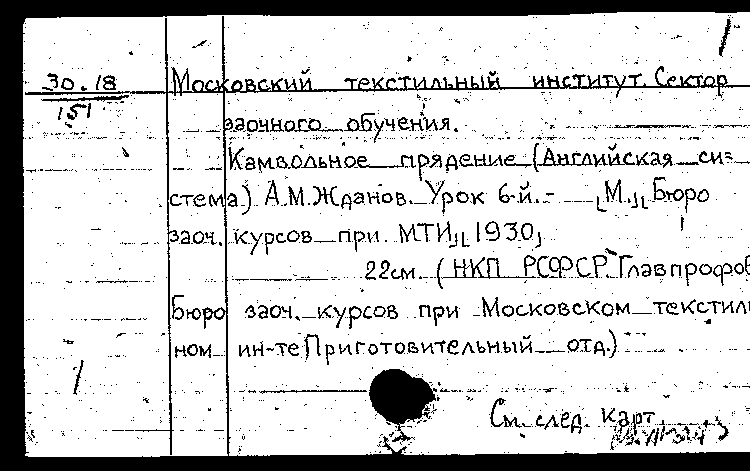 30.18
151
Московский текстильный институт. Сектор
заочного обучения.
Камвольное прядение (Английская си=
стема) А.М.Жданов. Урок 6-й. - [М.], [Бюро
заоч. курсов при МТИ], [1930]
22см. (НКП РСФСР. Главпрофоб
Бюро заоч. курсов при Московском текстиль
ном ин-те Приготовительный отд.)
См. след. карт.